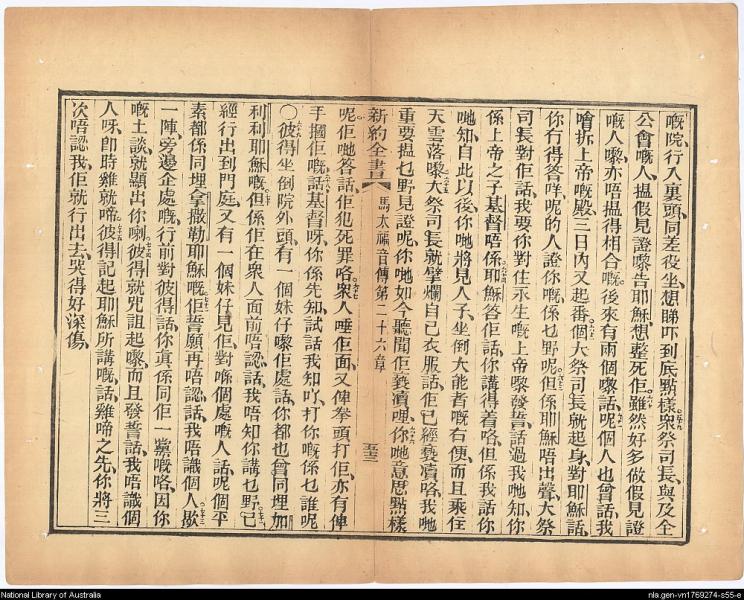 嘅院、行入裏頭、同差役坐、想睇吓到底點樣、衆祭司長、與及全
公會嘅人、搵假見證嚟告耶穌、想整死佢、雖然好多做假見證
嘅人嚟、亦唔搵得相合嘅、後來有兩個嚟話、呢個人也曾話、我
噲拆上帝嘅殿、三日內又起番個、大祭司長就起身、對耶穌話、
你有得答咩、呢的人證你嘅係乜野呢、但係耶穌唔出聲、大祭
司長對佢話、我要你對住永生嘅上帝嚟發誓、話過我哋知、你
係上帝之子基督唔係、耶穌答佢話、你講得着咯、但係我話你
哋知、自此以後、你哋將見人子、坐倒大能者嘅右便、而且乘住
天雲落嚟、大祭司長就擘爛自己衣服、話、佢已經褻瀆咯、我哋
重要搵乜野見證呢、你哋如今聽聞佢褻瀆哩、你哋意思點樣
新約全書 馬太福音傳第二十六章 五十三
呢、佢哋答話、佢犯死罪咯、衆人唾佢面、又俾拳頭打佢、亦有俾
手摑佢嘅、話、基督呀、你係先知、試話我知吖、打你嘅係乜誰呢
〇彼得坐倒院外頭、有一個妹仔嚟佢處話、你都也曾同埋加
利利耶穌嘅、但係佢在衆人面前唔認、話、我唔知你講乜野、已
經行出到門庭、又有一個妹仔見佢、對喺個處嘅人話、呢個平
素都係同埋拿撒勒耶穌嘅、佢誓願再唔認、話、我唔識個人、歇
一陣、旁邊企處嘅、行前對彼得話、你眞係同佢一黨嘅咯、因你
嘅土談、就顯出你喇、彼得就咒詛起嚟、而且發誓話、我唔識個
人呀、卽時雞就啼、彼得記起耶穌所講嘅話、雞啼之先、你將三
次唔認我、佢就行出去、哭得好深傷、
National Library of Australia
nla.gen-vn1769274-s55-e